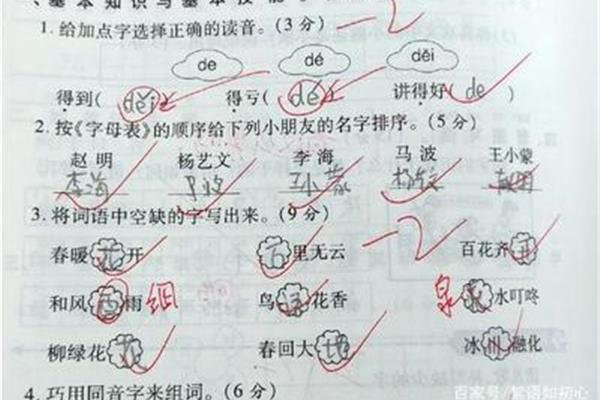 、基本知识与基本技能。
1.给加点字选择正确的读音。(3分) -2
de dé děi
得到( děi ) 得亏( dé ) 讲得好( de )
2.按《字母表》的顺序给下列小朋友的名字排序。(5分)
赵明 杨艺文 李海 马波 王小蒙
李海 马波 王小蒙
3.将词语中空缺的字写出来。(9分) -2
春暖花开 万里无云 百花齐
和风 雨 细 鸟语花香 泉 水叮咚
柳绿花 春回大地 冰川融化
4.巧用回音字来组词。(6分)
百家号/紫语如初心